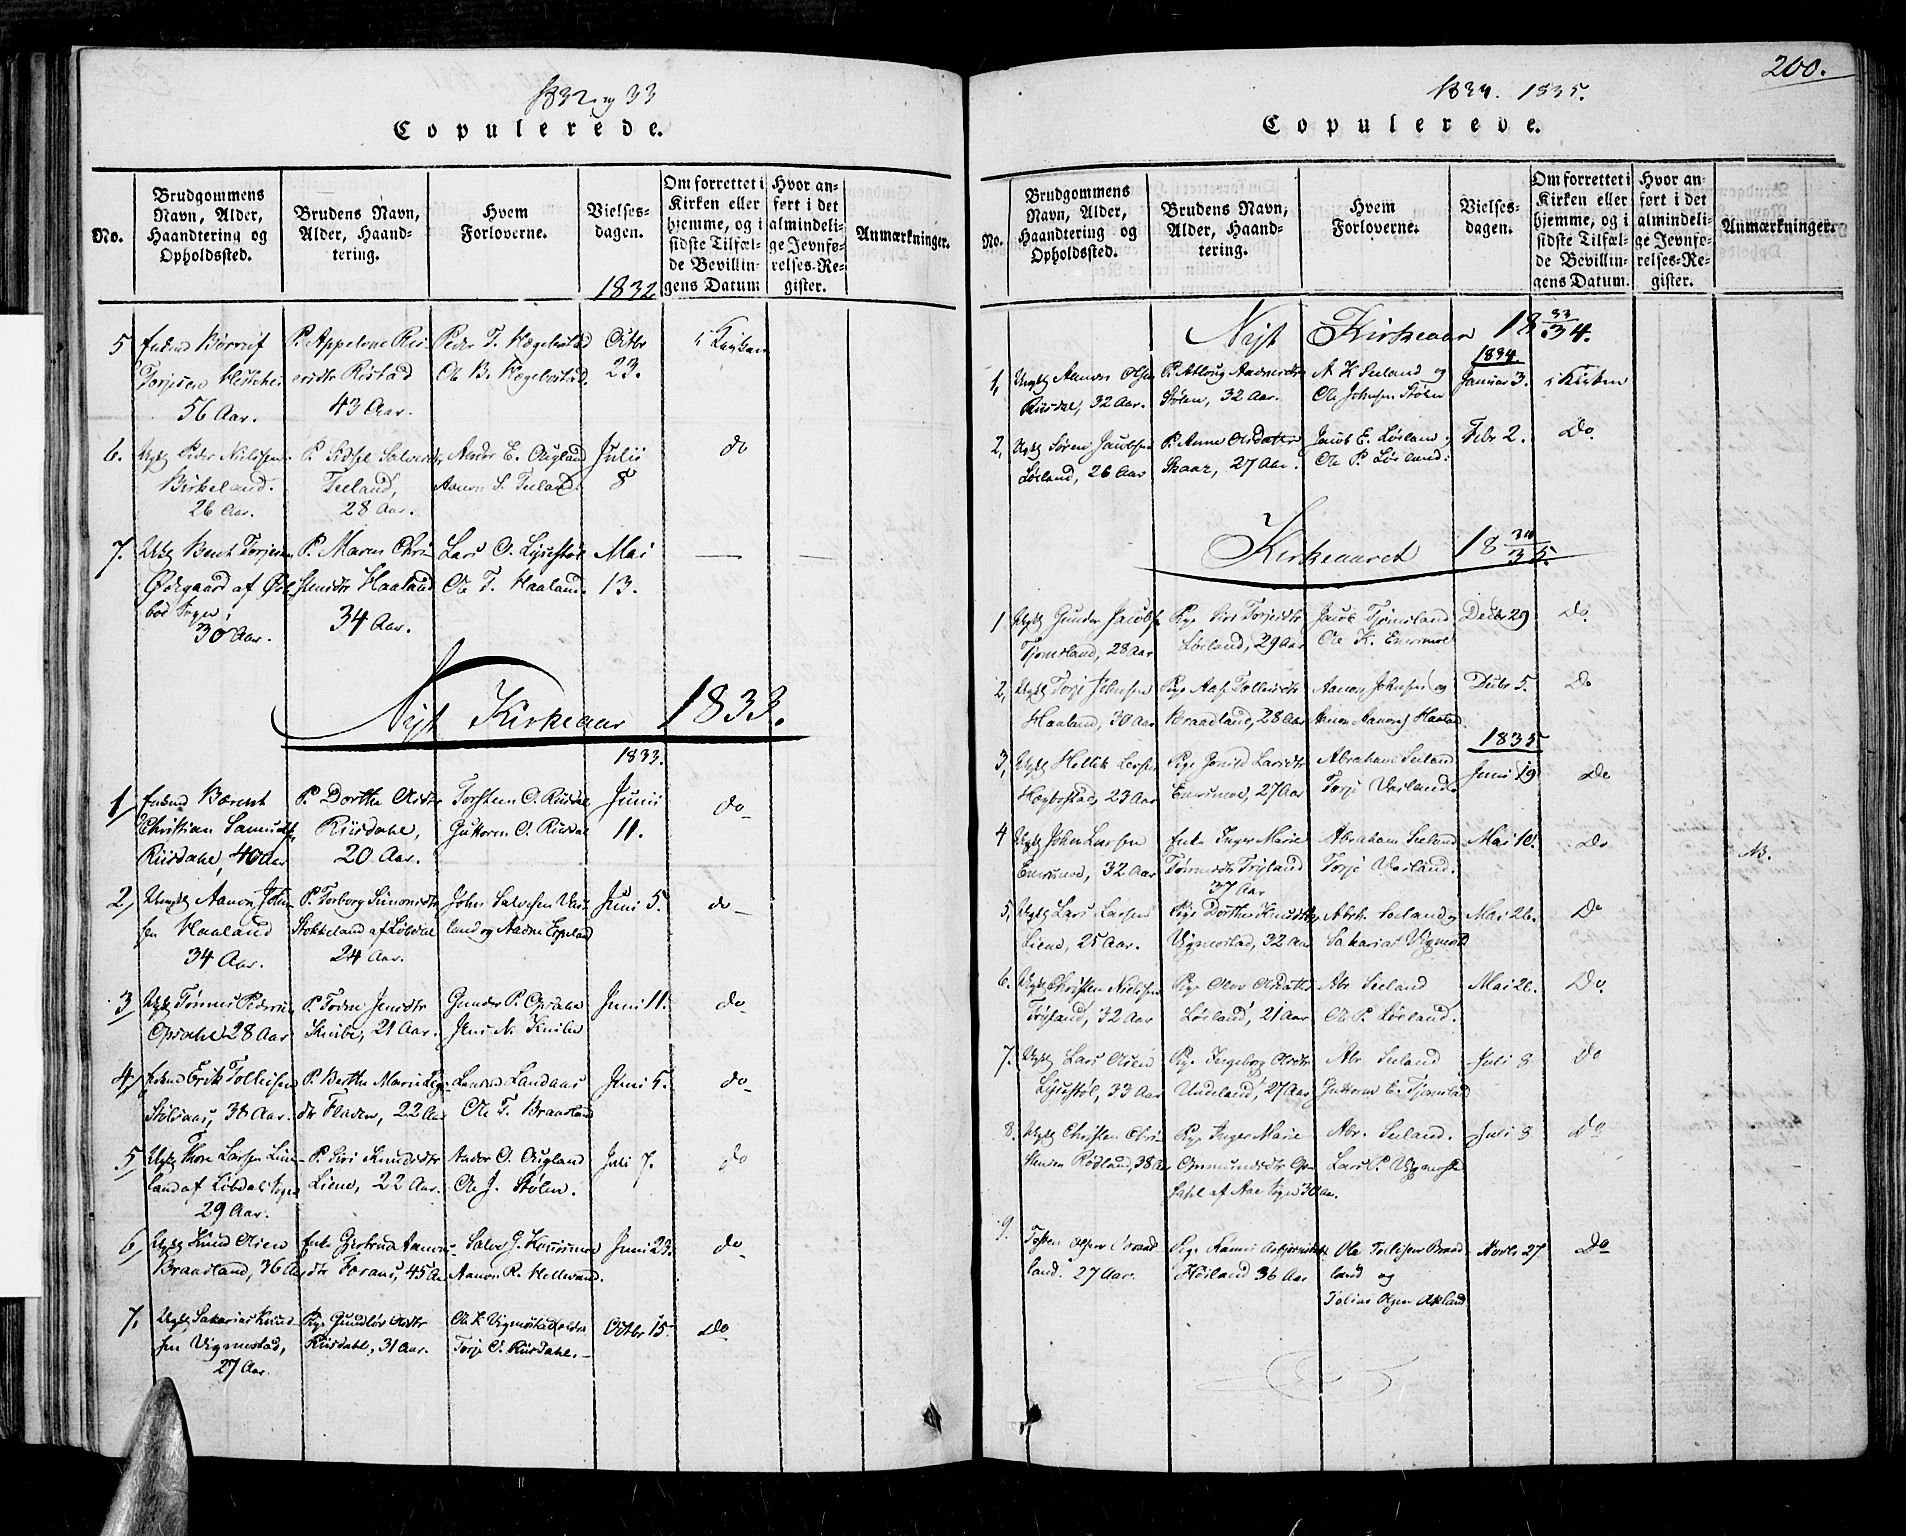 1832 og 33
Copulerede.
No.
Brudgommens
Navn, Alder,
Haandtering og
Opholdssted.
Brudens Navn,
Alder, Haand-
tering.
Hvem
Forloverne.
Vielses-
dagen.
1832
Om forrettet i
Kirken eller
hjemme, og i
sidste Tilfæl-
de Bevillin-
gens Datum
Hvor an-
ført i det
almindeli-
ge Jevnfø-
relses-Re-
gister.
Anmærkninger.
5 Enkmd
Torjesen
56 Aar.
P. Appelone
Ristad
43 Aar.
Peder T. Hægebostad
Ole B. Hægebostad.
Octbr
23.
i Kirken
6. Ugkl Peder Nilssen
Birkeland.
26 Aar.
P. Sidsel Salvesdtr
Teeland,
28 Aar.
E. Øugland
Aanon S. Teeland.
Julii
8
do
7. Ugkl Bent Torjesen
Ødegaard af
bod Sogn,
30 Aar.
P. Maren Chri-
stensdtr Haaland
34 Aar.
Lars O. Lyseståhl
Ole T. Haaland.
Mai
13.
Nyt Kirkeaar 1833.
1833.
1, Enkmd Bærent
Christian Samuels.
Riisdahl, 40 Aar
P. Dorthe Olsdtr
Riisdahl,
20 Aar.
Torsteen O. Riisdal
Guttorm O. Riisdal
Junii
11.
do
2, Ungkl Aanon John-
sen Haaland
34 Aar.
P. Torborg Simonsdtr
Stokkeland af Løbdal
24 Aar.
John Salvesen
land og Aadne Espeland
Juni 5.
do
3, Ugkl Tønnes Peders.
Opsahl 28 Aar
P. Todne Jensdtr
Knibe, 21 Aar.
Gunder P. Opsahl
Jens N. Knibe
Juni 11.
do
4, Enkmd Erik Tollefsen
38 Aar.
P. Berthe Marie
dtr Fladen, 22 Aar
Landaas
Ole T. Braadland
Juni 5.
do
5, Ugkl Thore Larsen Lin-
land af Løbdals Sogn
29 Aar.
P. Siri Knudsdtr
Liene, 22 Aar.
Andor O. Øugland
Ole J. Stølen.
Juli 7.
do
6, Ugkl Knud Olsen
Braadland, 36 Aar
Enke Gjertrud Aanons-
dtr Foraas, 45 Aar
Salve G.
Aanon R. Helleraas.
Juni 23.
do
7, Ugkl Sakarias Knud-
sen Vigmostad,
27 Aar.
Pige Gundlør Olsdtr
Riisdahl, 31 Aar.
Ole K. Vigmostad
Torje O. Riisdahl.
Octbr 15.
Do
200.
1834. 1835.
Copulerede.
No.
Brudgommens
Navn, Alder,
Haandtering og
Opholdssted.
Brudens Navn,
Alder, Haand-
tering.
Hvem
Forloverne.
Vielses-
dagen.
Om forrettet i
Kirken eller
hjemme, og i
sidste Tilfæl-
de Bevillin-
gens Datum.
Hvor an-
ført i det
almindeli-
ge Jevnfø-
relses-Re-
gister.
Anmærkninger.
Nyt Kirkeaar 18 33/34.
1834.
1, Ungkl Aanon Olsen
Riisdal, 32 Aar.
P. Atloug Aadnesdtr
Stølen, 32 Aar.
A. K. Seeland og
Ole Johnsen Stølen
Januar 3.
i Kirken
2, Ugkl Søren Jacobsen
Løeland, 26 Aar
P. Anne Olsdatter
Skaar, 27 Aar.
Jacob E. Løeland og
Ole P. Løeland.
Febr 2.
Do.
Kirkeaaret 18 34/35.
1 Ugkl Gunder Jacobs.
Tjomsland, 28 Aar
Pige Siri Torjesdtr
Løeland, 29 Aar
Jacob Tjomsland
Ole K.
Decbr 29
Do
2, Ugkl Torje Johnsen
Haaland, 30 Aar
Pige Aase Tollevsdtr
Braadland, 28 Aar
Aanon Johnsen og
Aanon Aanons. Haaland
Decbr 5.
Do
1835
3, Ugkl Hellik Larsen
Hægbostad, 23 Aar
Pige Jonild Larsdtr
27 Aar
Abraham Seeland
Torje Vaeland.
Juni 19
Do
4 Ugkl John Larsen
32 Aar
Enke Inger Marie
Tønnesdtr Trydland
37 Aar
Abraham Seeland
Torje Vaeland.
Mai 10.
Do
NB.
5, Ugkl Lars Larsen
Liene, 25 Aar.
Pige Dorthe Knudsdtr
Vigmostad, 32 Aar
Abrh. Seeland og
Sakarias Vigmost.
Mai 26.
Do
6. Ugkl Christen Nielsen
Trydland, 32 Aar
Pige Olov Olsdatter
Løeland, 21 Aar
Abr Seeland
Ole P. Løeland.
Mai 26.
Do.
7. Ugkl Lars Olsen
Lysestøl, 33 Aar
Pige Ingeborg Olsdtr
Undeland, 27 Aar
Abr. Seeland
Guttorm E. Tjomslad
Juli 8
Do
8. Ugkl Christen Chri-
stensen Rødland, 38 Aar
Pige Inger Marie
Ommundsdtr Op-
sahl af Aae Sogn 30 Aar.
Abr. Seeland.
Lars P. Vigmostad
Juli 8
Do
9. Tosten Olsen Braad
land. 27 Aar.
Pige Karen Asbjørnsdtr
Høiland 36 Aar
Ole Tollefsen Braad
land og
Tobias Olsen Aaland
Novbr 27
Do